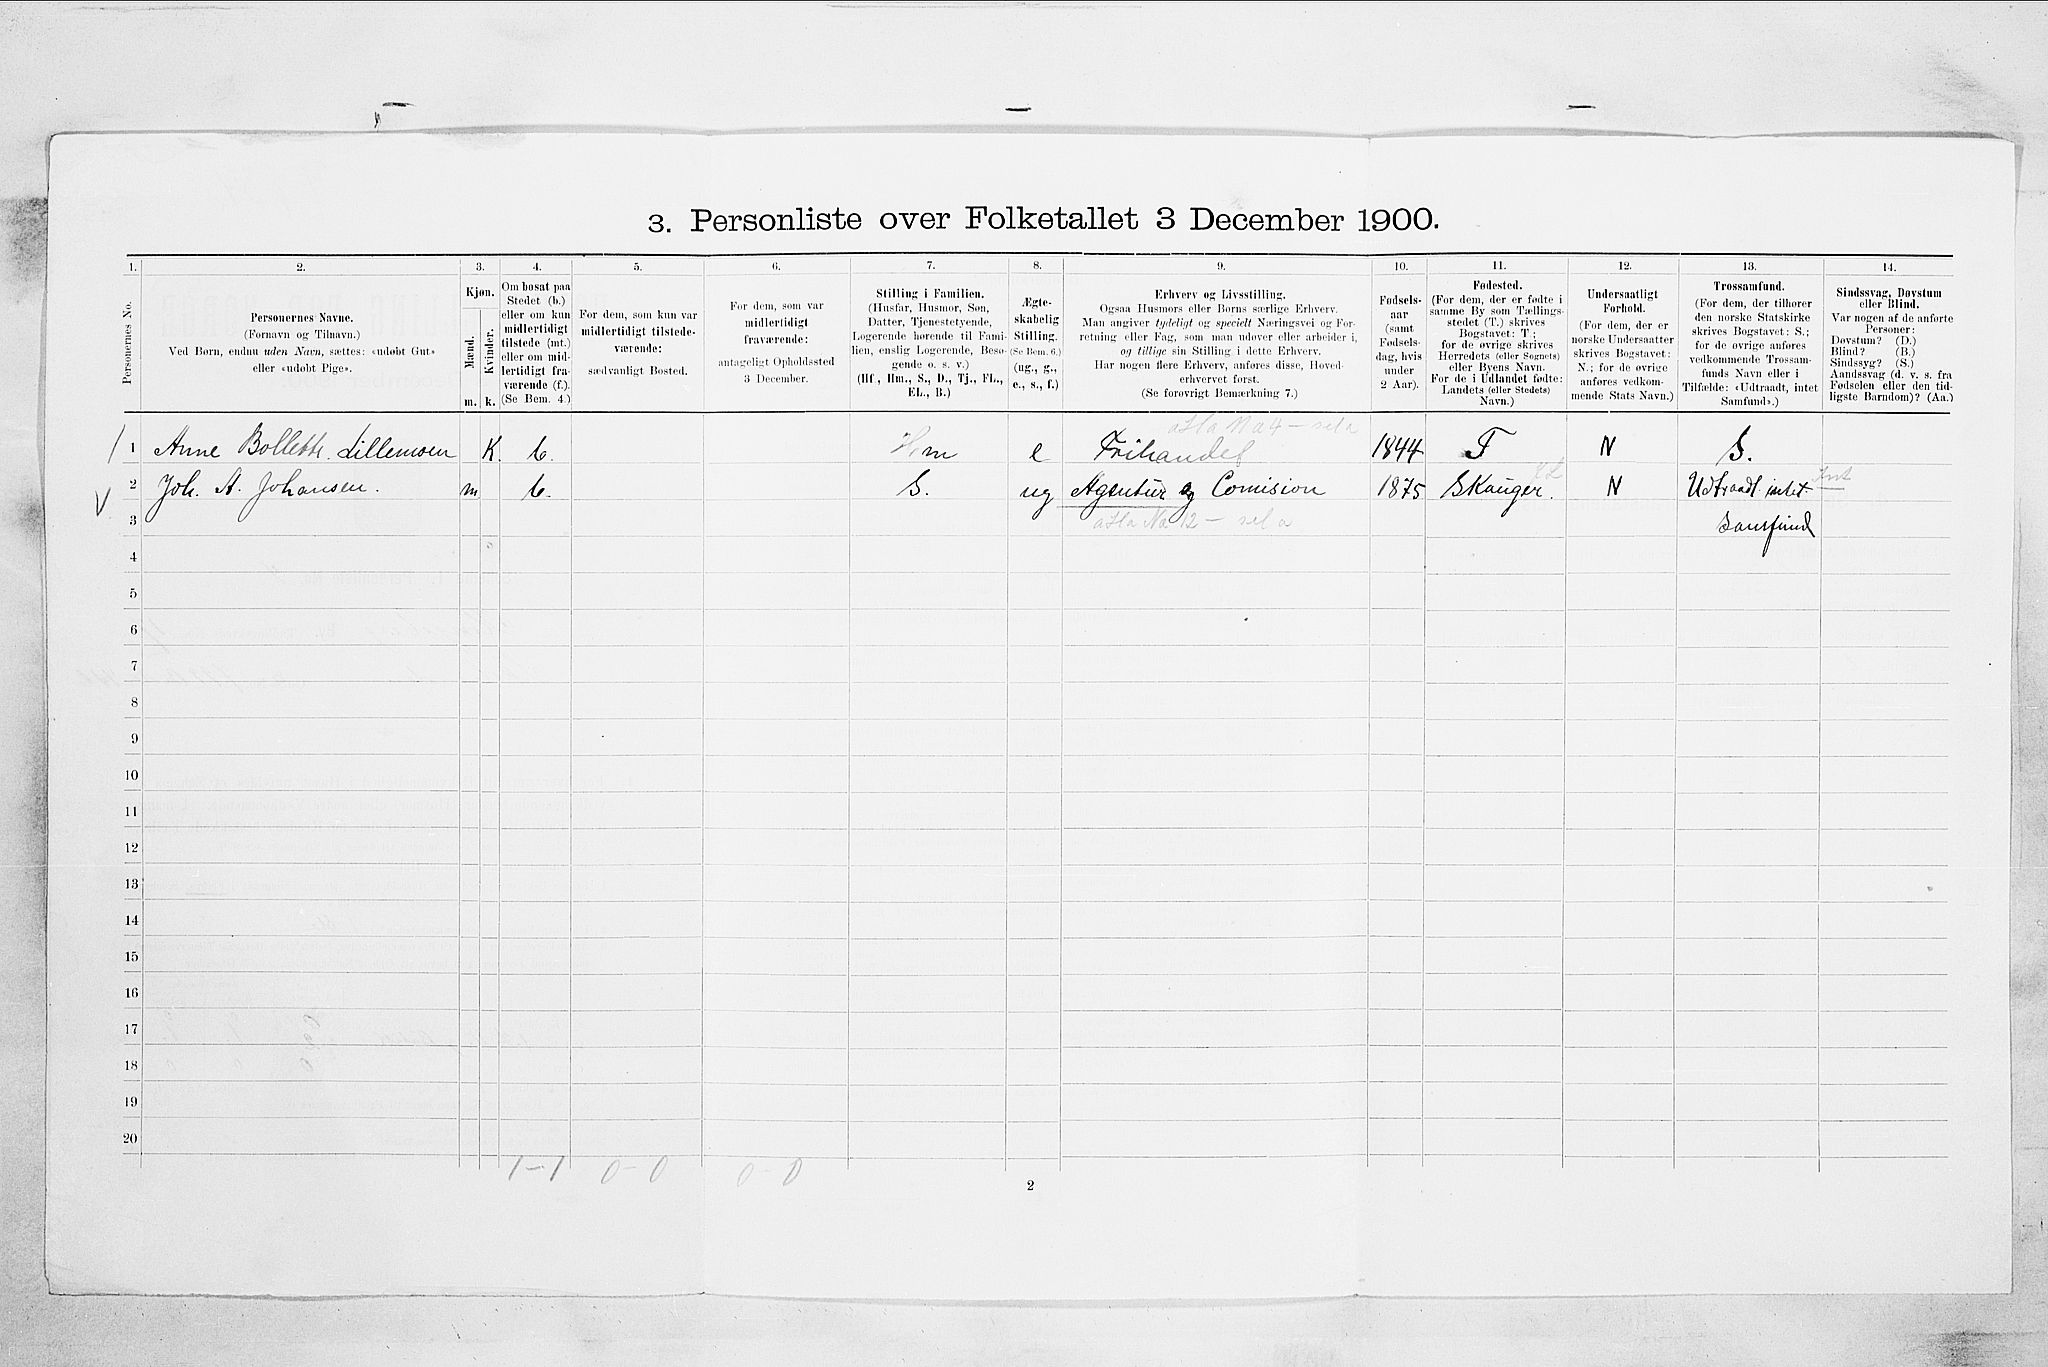 3. Personliste over Folketallet 3 December 1900.
1. 2. 3. 4. 5. 6. 7. 8. 9. 10. 11. 12. 13. 14.
Personernes No.
Personernes Navne.
(Fornavn og Tilnavn.)
Ved Børn, endnu uden Navn, sættes: «udøbt Gut»
eller «udøbt Pige».
Kjøn.
Mænd.
Kvinder.
m. k.
Om bosat paa
Stedet (b.)
eller om kun
midlertidigt
tilstede (mt.)
eller om mid-
lertidigt fra-
værende (f.).
(Se Bem. 4.)
For dem, som kun var
midlertidigt tilstede-
værende:
sædvanligt Bosted.
For dem, som var
midlertidigt
fraværende:
antageligt Opholdssted
3 December.
Stilling i Familien.
(Husfar, Husmor, Søn,
Datter, Tjenestetyende,
Logerende hørende til Fami-
lien, enslig Logerende, Besø-
gende o. s. v.)
(Hf., Hm., S., D., Tj., FL.,
EL., B.)
Ægte-
skabelig
Stilling.
(Se Bem. 6.)
(ug., g.,
e., s., f.)
Erhverv og Livsstilling.
Ogsaa Husmors eller Børns særlige Erhverv.
Man angiver tydeligt og specielt Næringsvei og For-
retning eller Fag, som man udøver eller arbeider i,
og tillige sin Stilling i dette Erhverv.
Har nogen flere Erhverv, anføres disse, Hoved-
erhvervet først.
(Se forøvrigt Bemærkning 7.)
Fødsels-
aar
(samt
Fødsels-
dag, hvis
under
2 Aar).
Fødested.
(For dem, der er fødte i
samme By som Tællings-
stedet (T.) skrives
Bogstavet: T;
for de øvrige skrives
Herredets (eller Sognets)
eller Byens Navn.
For de i Udlandet fødte:
Landets (eller Stedets)
Navn.)
Undersaatligt
Forhold.
(For dem, der er
norske Undersaatter
skrives Bogstavet:
N.; for de øvrige
anføres vedkom-
mende Stats Navn.)
Trossamfund.
(For dem, der tilhører
den norske Statskirke
skrives Bogstavet: S.;
for de øvrige anføres
vedkommende Trossam-
funds Navn eller i
Tilfælde: «Udtraadt, intet
Samfund».)
Sindssvag, Døvstum
eller Blind.
Var nogen af de anførte
Personer:
Døvstum? (D.)
Blind? (B.)
Sindssyg? (S.)
Aandssvag (d. v. s. fra
Fødselen eller den tid-
ligste Barndom)? (Aa.)
1 Anne Bollette Lillemoen K. b. Hm e Frihandel 1844 T N S.
2 Joh. A. Johansen. m b. S. ug Agentur og Comision 1875 Skauger. N Udtraadt intet
3 Samfund
4
5
6
7
8
9
10
11
12
13
14
15
16
17
18
19
20
1-1 0-0 0-0
2